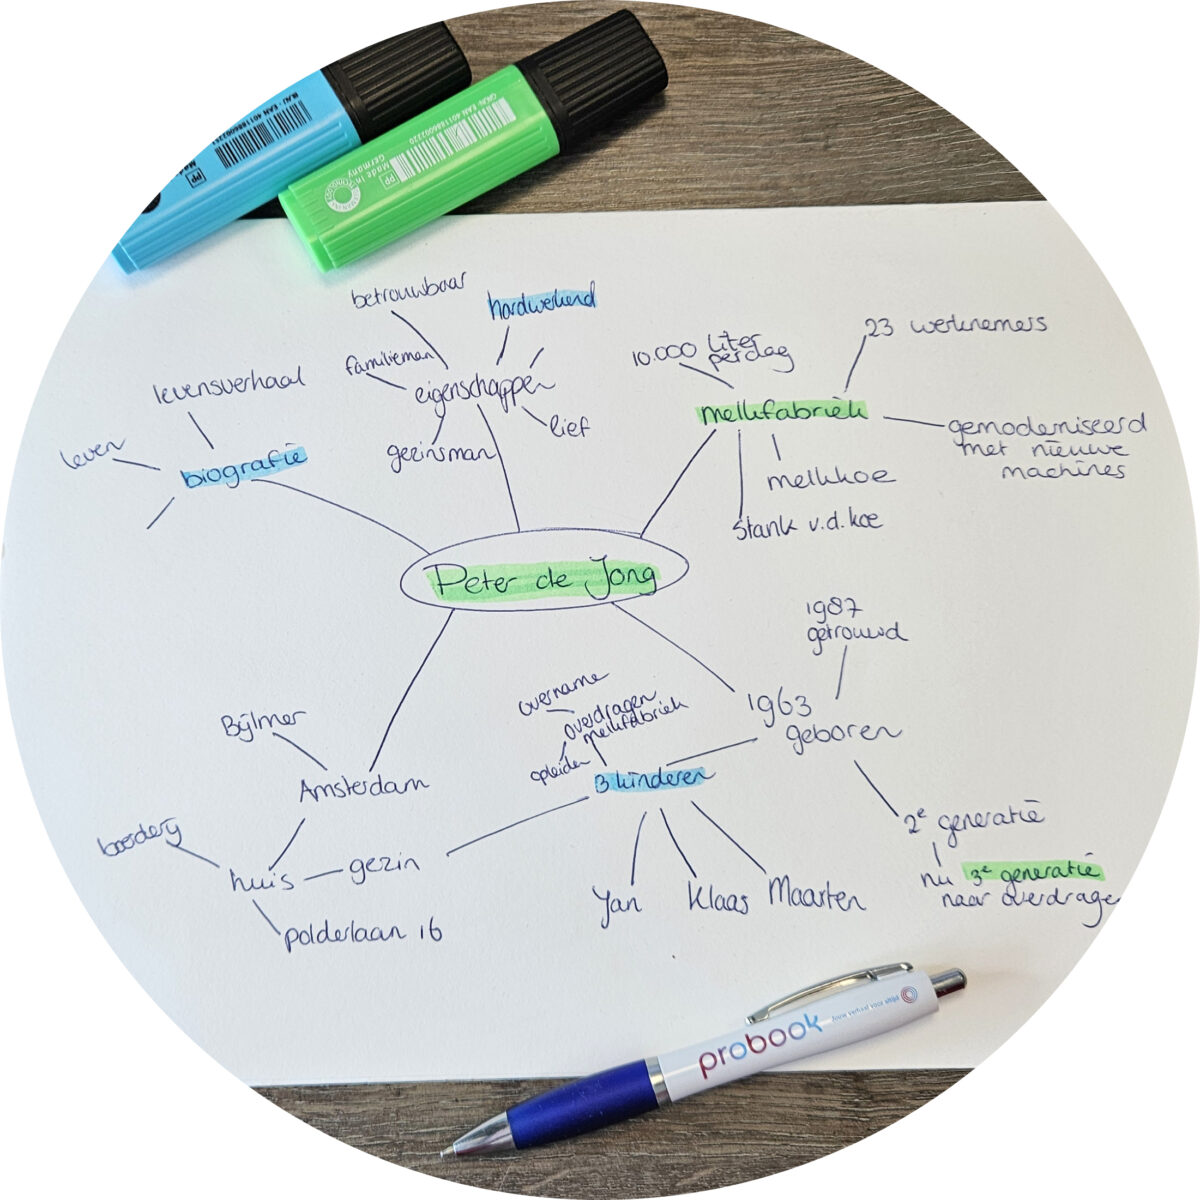 Made in
Germany
PP
betrouwbaar
hardwerkend
familieman
eigenschappen
gezinsman
lief
levensverhaal
leven
biografie
10.000 liter
per dag
23 werknemers
melkfabriek
gemoderniseerd
met nieuwe
machines
melkkoe
stank v.d. koe
Peter de Jong
1987
getrouwd
1963
geboren
overname
overdragen
melkfabriek
opleiden
3 kinderen
Bijlmer
Amsterdam
boerderij
huis
gezin
polderlaan 16
Jan
Klaas
Maarten
2e generatie
nu 3e generatie
naar overdrage
probook
Jouw verhaal voor altijd